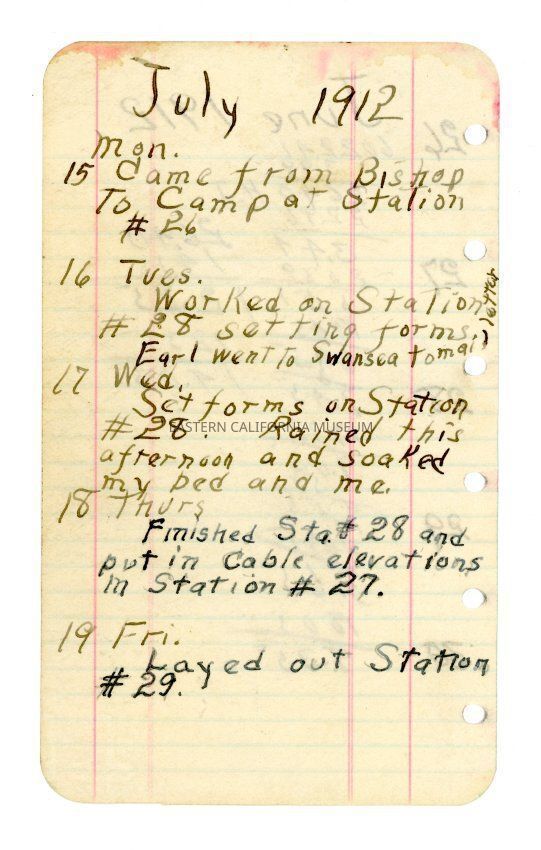 July 1912
Mon.
15 Came from Bishop
To Camp at Station
# 26
16 Tues.
Worked on Station
# 28 setting forms.
Earl went To Swansea to mail letter
17 Wed.
Set forms on Station
# 28. Rained this
EASTERN CALIFORNIA MUSEUM
afternoon and soaked
my bed and me.
18 Thurs
Finished Sta. # 28 and
put in Cable elevations
in Station # 27.
19 Fri.
Layed out Station
# 29.